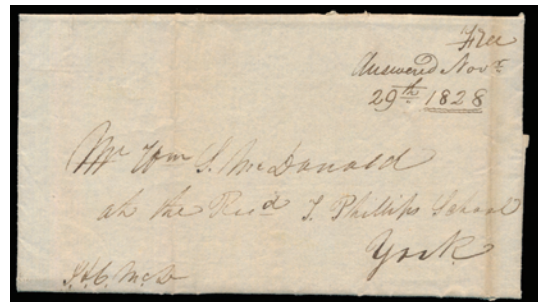 Free
Answered Novr.
29th 1828
Mr Wm S. McDonald
at the Revd T. Phillips School
York